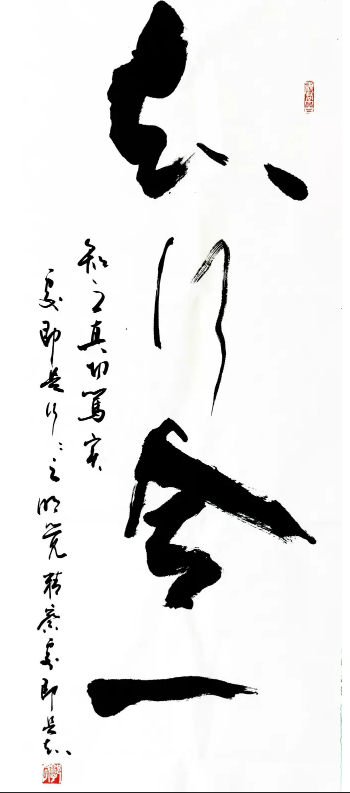 知行合一
知之真切篤实
處即是行〻之明覺精察處即是知